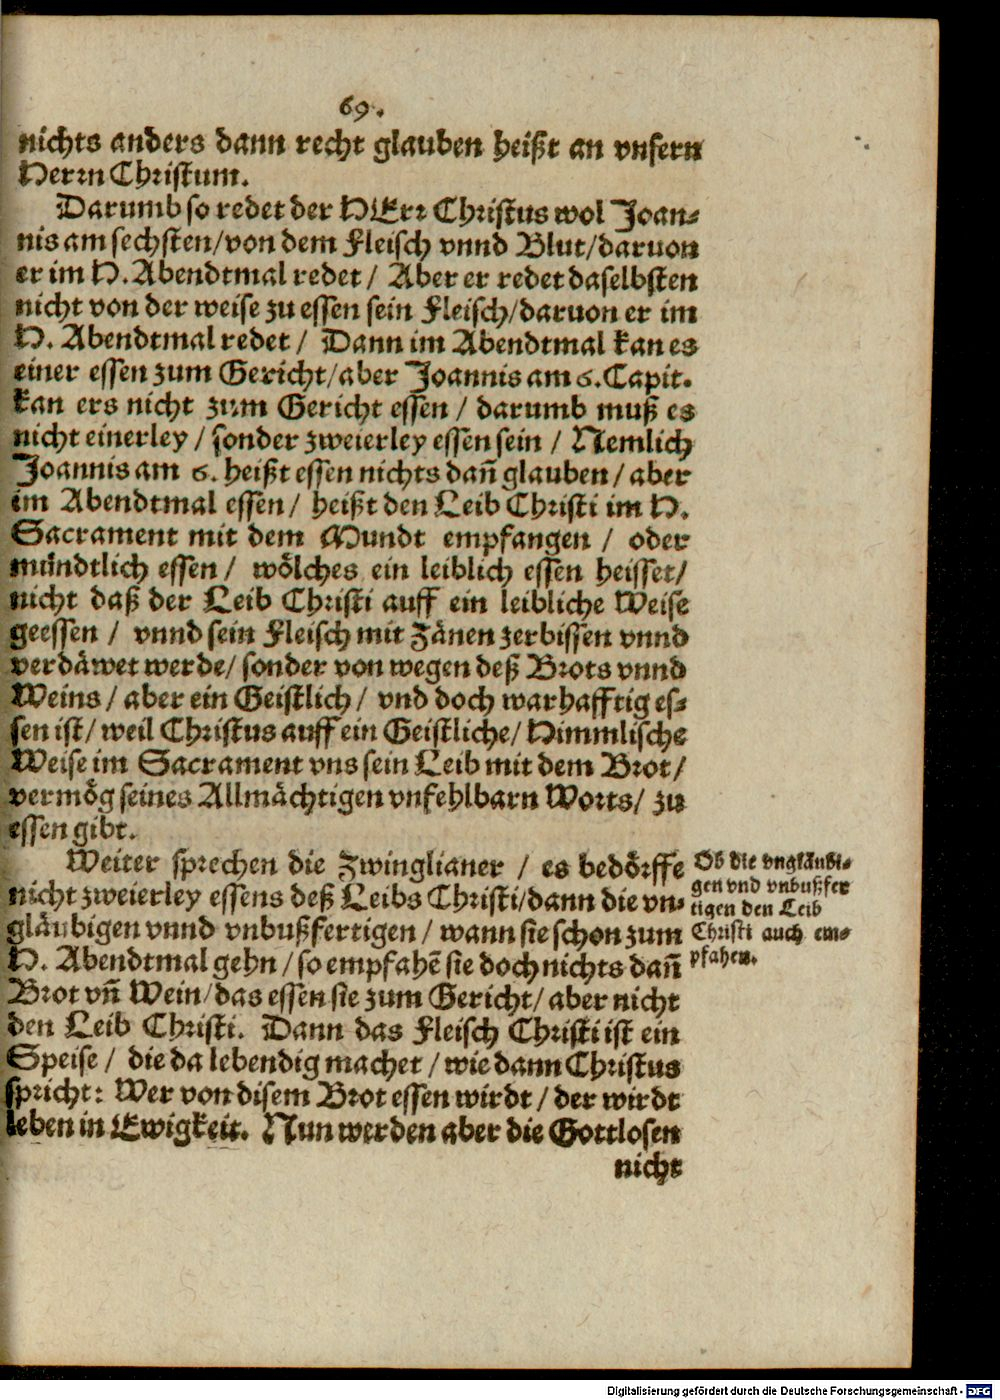 69.
nichts anders dann recht glauben heißt an vnsern
Herrn Christum.
Darumb so redet der HErr Christus wol Joan-
nis am sechsten/von dem Fleisch vnnd Blut/daruon
er im H. Abendtmal redet / Aber er redet daselbsten
nicht von der weise zu essen sein Fleisch/daruon er im
H. Abendtmal redet / Dann im Abendtmal kan es
einer essen zum Gericht/aber Joannis am 6. Capit.
kan ers nicht zum Gericht essen / darumb muß es
nicht einerley / sonder zweierley essen sein / Nemlich
Joannis am 6. heißt essen nichts dañ glauben / aber
im Abendtmal essen / heißt den Leib Christi im H.
Sacrament mit dem Mundt empfangen / oder
mündtlich essen / wölches ein leiblich essen heisset/
nicht daß der Leib Christi auff ein leibliche Weise
geessen / vnnd sein Fleisch mit Zänen zerbissen vnnd
verdäwet werde/ sonder von wegen deß Brots vnnd
Weins / aber ein Geistlich / vnd doch warhafftig es-
sen ist/ weil Christus auff ein Geistliche/ Himmlische
Weise im Sacrament vns sein Leib mit dem Brot/
vermög seines Allmächtigen vnfehlbarn Worts/ zu
essen gibt.
Weiter sprechen die Zwinglianer / es bedörffe
nicht zweierley essens deß Leibs Christi/dann die vn-
gläubigen vnnd vnbußfertigen / wann sie schon zum
H. Abendtmal gehn / so empfahē sie doch nichts dañ
Brot vñ Wein/das essen sie zum Gericht/ aber nicht
den Leib Christi. Dann das Fleisch Christi ist ein
Speise / die da lebendig machet / wie dann Christus
spricht: Wer von disem Brot essen wirdt / der wirdt
leben in Ewigkeit. Nun werden aber die Gottlosen
nicht
Ob die vngläubi-
gen vnd vnbußfer
tigen den Leib
Christi auch em-
pfahen.
Digitalisierung gefördert durch die Deutsche Forschungsgemeinschaft - DFG